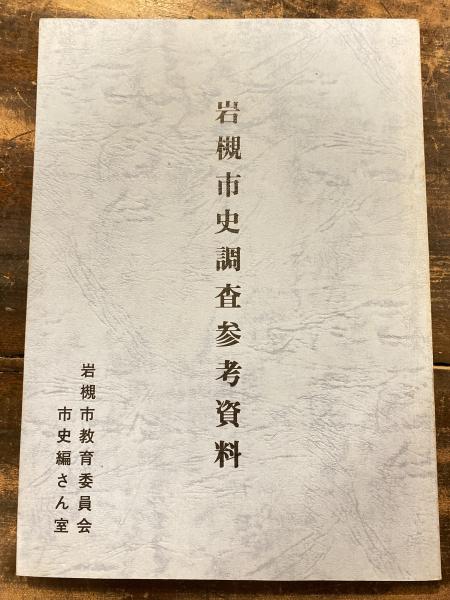 岩槻市史調査参考資料
岩槻市教育委員会
市史編さん室